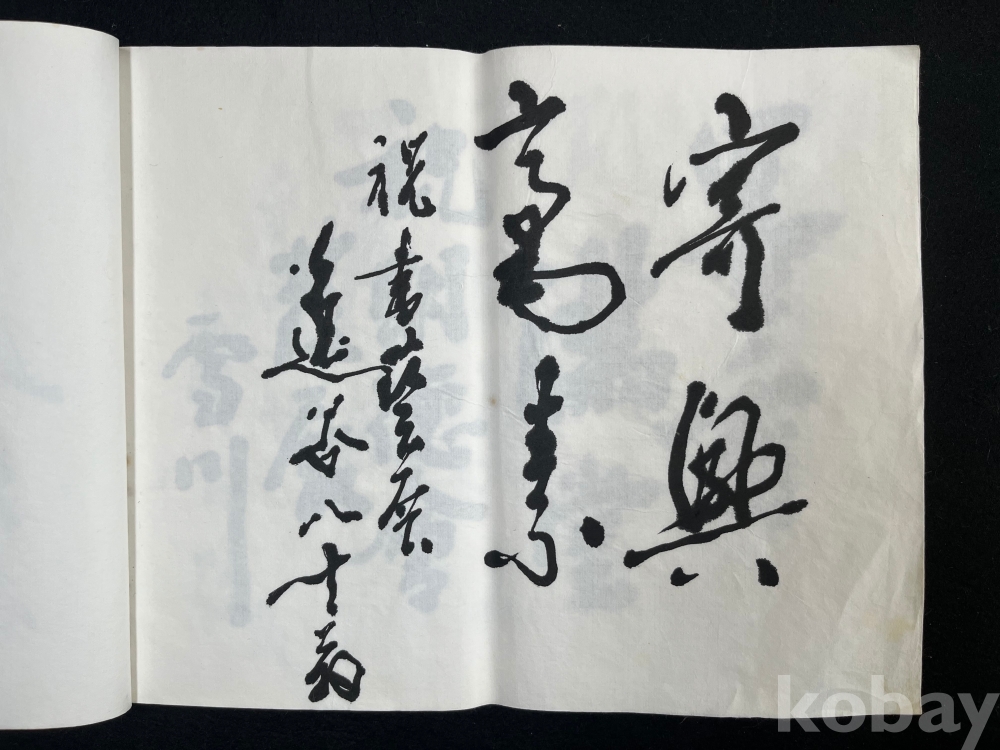 寄興
高素
祝書藝展
谷八十翁
kobay